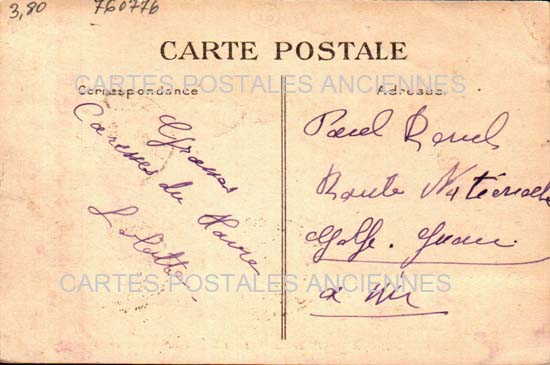 3,80 760776
CARTE POSTALE
CARTES POSTALES ANCIENNES
Correspondance
Adresse
Grosses
Caresses du Havre
Paul
Route Nationale
Golfe-Juan
CARTES POSTALES ANCIENNES